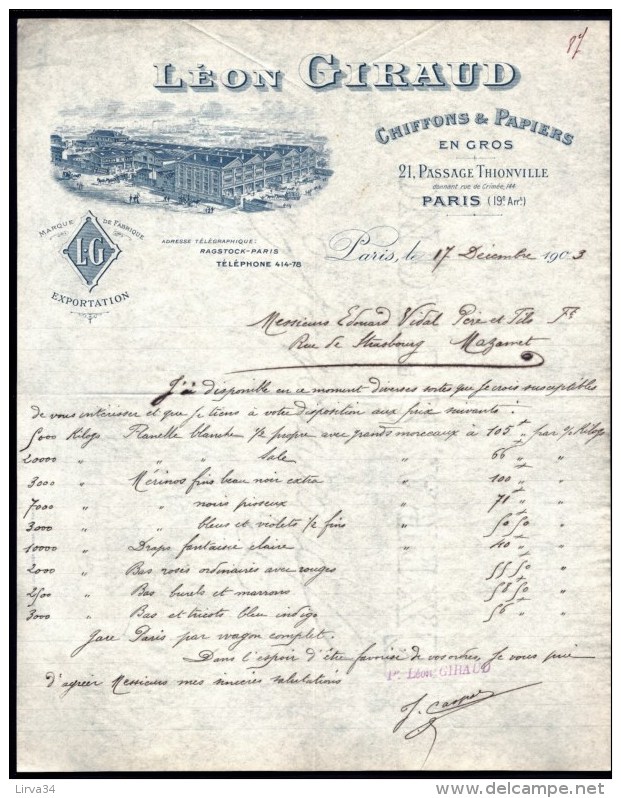 87
LÉON GIRAUD
CHIFFONS & PAPIERS
EN GROS
21, PASSAGE THIONVILLE
donnant rue de Crimée, 144
PARIS (19e Arrt)
MARQUE DE FABRIQUE
LG
EXPORTATION
ADRESSE TÉLÉGRAPHIQUE:
RAGSTOCK-PARIS
TÉLÉPHONE 414-78
Paris, le 17 Décembre 1903
Messieurs Edouard Vidal Père et Fils
Rue de Strasbourg Mazamet
J'ai disponible en ce moment diverses sortes que je crois susceptibles
de vous intéresser et que je tiens à votre disposition aux prix suivants:
5000 Kilogs Flanelle blanche 1/2 propre avec grands morceaux à 105 " par % Kilogs
20000 " " " Sale " 66 " "
3000 " Mérinos fins beau noir extra " 100 " "
7000 " " noirs " 71 " "
3000 " " bleus et violets 1/2 fins " 50 50 " "
10000 " Draps fantaisie claire " 40 " "
2000 " Bas rosés ordinaires avec rouges 55 50 " "
2500 " Bas burels et marrons 58 50 " "
3000 " Bas et tricots bleu indigo 56 " "
Gare Paris par wagon complet.
Dans l'espoir d'être favorisé de vos ordres, je vous prie
d'agréer Messieurs mes sincères salutations
Pr. Léon GIRAUD
Lirva34
delcampe.net